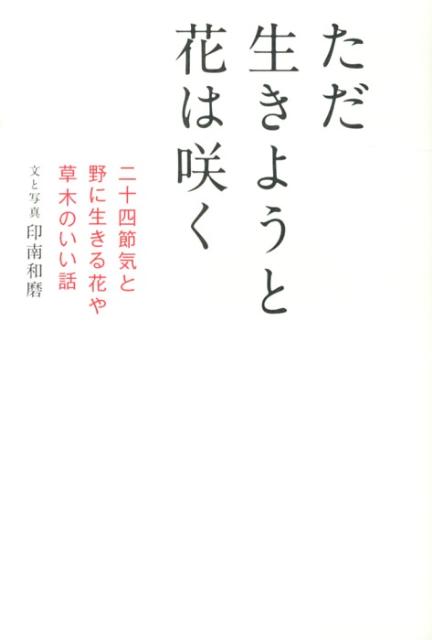 ただ
生きようと
花は咲く
二十四節気と
野に生きる花や
草木のいい話
文と写真 印南和磨